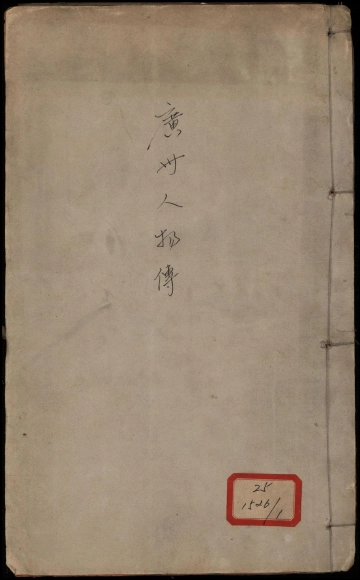 廣州人物傳
25
1526/1